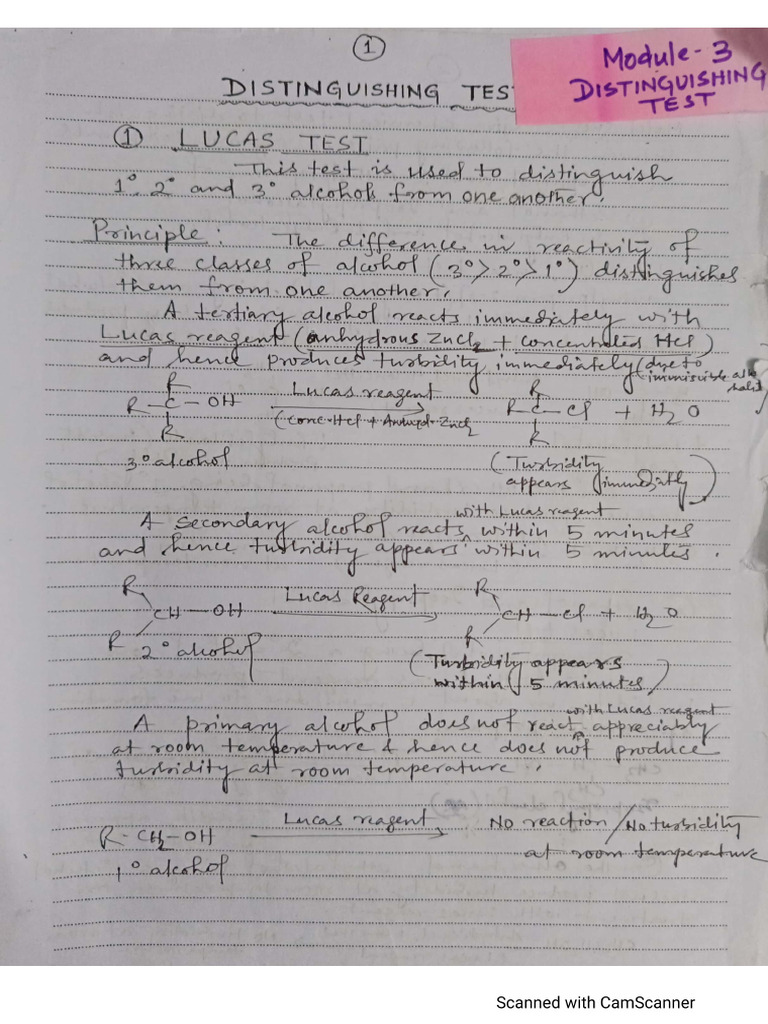 1
Module-3
DISTINGUISHING
TEST
DISTINGUISHING TES
① LUCAS TEST
This test is used to distinguish
1°, 2° and 3° alcohols from one another.
Principle: The difference in reactivity of
three classes of alcohol (3°>2°>1°) distinguishes
them from one another.
A tertiary alcohol reacts immediately with
Lucas reagent (anhydrous ZnCl2 + concentrated HCl)
and hence produces turbidity immediately (due to
immiscible
R R
R-C-OH Lucas reagent R-C-Cl + H2O
R (conc. HCl + Anhyd. ZnCl2 R
3° alcohol (Turbidity
appears immediately)
with Lucas reagent
A secondary alcohol reacts ^ within 5 minutes
and hence turbidity appears within 5 minutes.
R Lucas Reagent R
CH-OH CH-Cl + H2O
R R
2° alcohol (Turbidity appears
within 5 minutes)
with Lucas reagent
A primary alcohol does not react ^ appreciably
at room temperature & hence does not produce
turbidity at room temperature.
R-CH2-OH Lucas reagent No reaction/No turbidity
1° alcohol at room temperature
Scanned with CamScanner